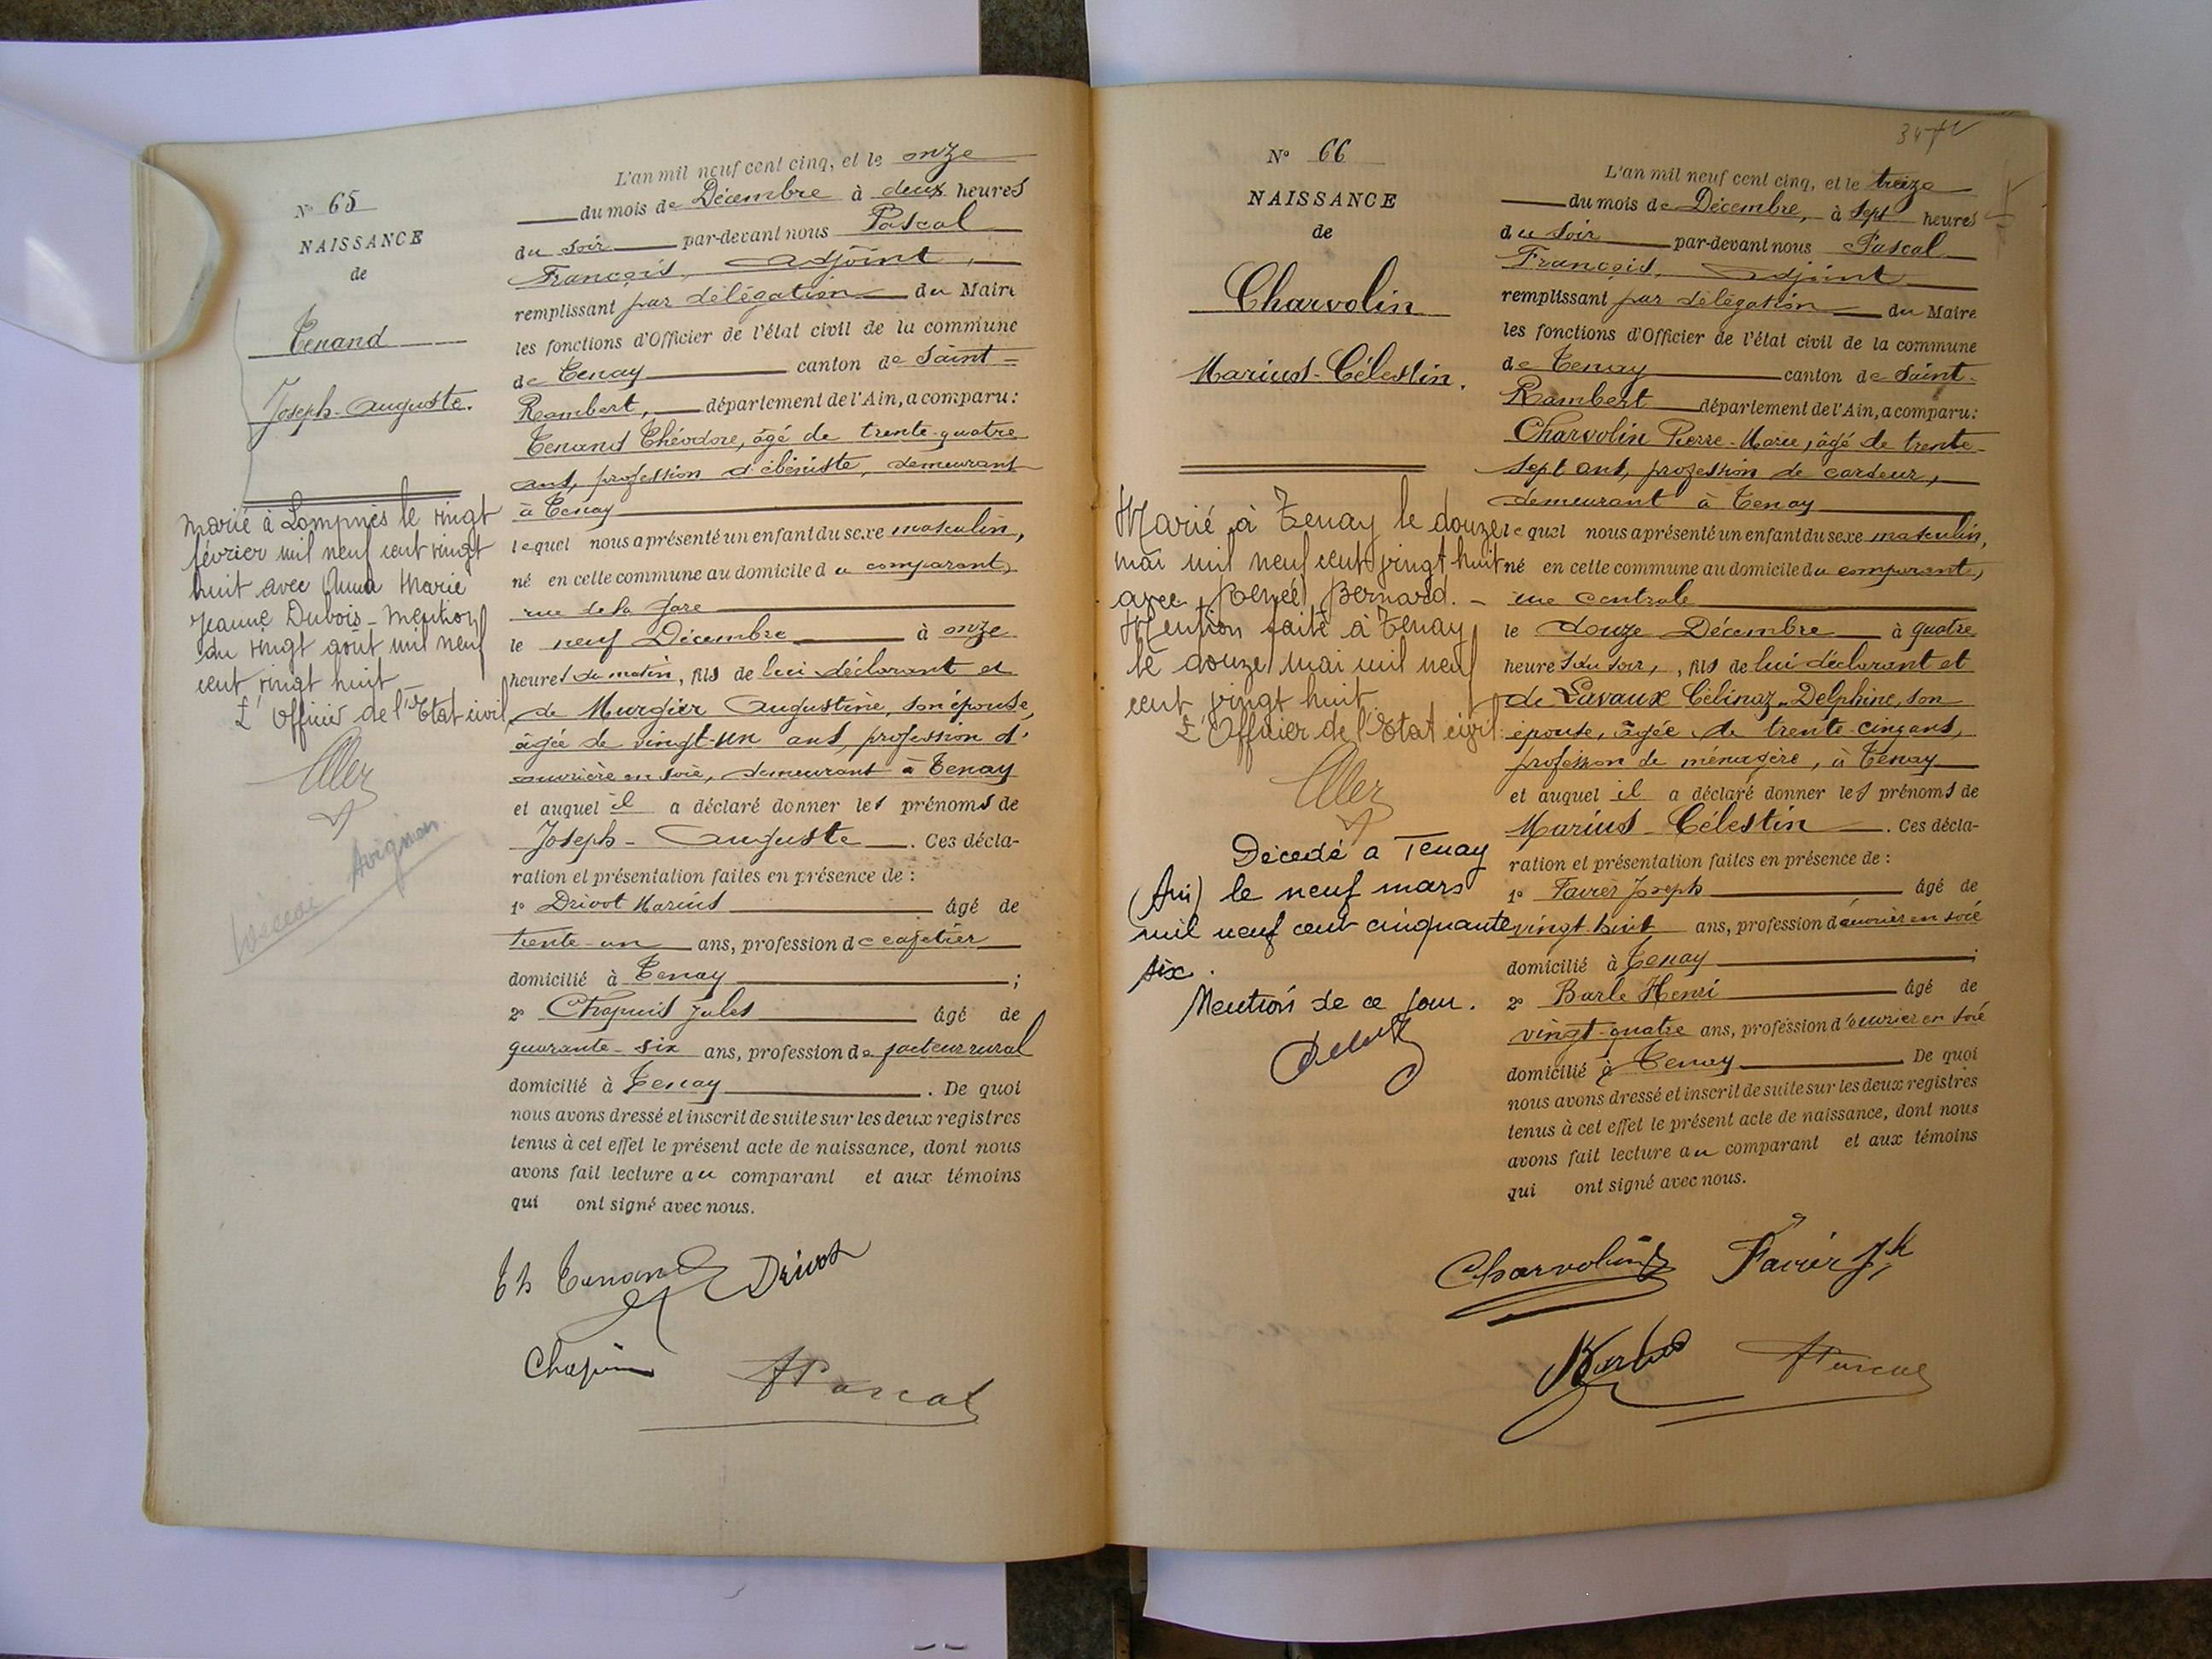 N° 65
NAISSANCE
de
Tenand
Joseph-Auguste.
Marié à Lompnes le vingt
février mil neuf cent vingt
huit avec Anna Marie
Jeanne Dubois - Mention
du vingt août mil neuf
cent vingt huit -
L'Officier de l'Etat civil
Avignon
L'an mil neuf cent cinq, et le onze
du mois de Décembre à deux heures
du soir par-devant nous Pascal
François, adjoint,
remplissant par délégation du Maire
les fonctions d'Officier de l'état civil de la commune
de Tenay canton de Saint-
Rambert, département de l'Ain, a comparu:
Tenand Théodore, âgé de trente-quatre
ans, profession d'ébéniste, demeurant
à Tenay
lequel nous a présenté un enfant du sexe masculin,
né en cette commune au domicile du comparant,
rue de la Gare
le neuf Décembre à onze
heures du matin, fils de lui déclarant et
de Murgier Augustine, son épouse,
âgée de vingt-un ans, profession d'
ouvrière en soie, demeurant à Tenay
et auquel il a déclaré donner les prénoms de
Joseph-Auguste. Ces décla-
ration et présentation faites en présence de :
1° Drivot Marius âgé de
trente-un ans, profession de cafetier
domicilié à Tenay ;
2° Chapuis Jules âgé de
quarante-six ans, profession de facteur rural
domicilié à Tenay. De quoi
nous avons dressé et inscrit de suite sur les deux registres
tenus à cet effet le présent acte de naissance, dont nous
avons fait lecture au comparant et aux témoins
qui ont signé avec nous.
Th Tenand Drivot
Chapuis APascal
N° 66
NAISSANCE
de
Charvolin
Marius-Célestin.
Marié à Tenay le douze
mai mil neuf cent vingt huit
avec Renée Bernard. -
Mention faite à Tenay
le douze mai mil neuf
cent vingt huit.
L'Officier de l'Etat civil:
Décedé a Tenay
(Ain) le neuf mars
mil neuf cent cinquante
six.
Mention de ce jour.
L'an mil neuf cent cinq, et le treize
du mois de Décembre, à sept heures
du soir par-devant nous Pascal
François, adjoint
remplissant par délégation du Maire
les fonctions d'Officier de l'état civil de la commune
de Tenay canton de Saint-
Rambert département de l'Ain, a comparu:
Charvolin Pierre-Marie, âgé de trente-
sept ans, profession de cardeur,
demeurant à Tenay
lequel nous a présenté un enfant du sexe masculin,
né en cette commune au domicile du comparant,
rue centrale
le douze Décembre à quatre
heures du soir, fils de lui déclarant et
de Lavaux Célinaz-Delphine, son
épouse, âgée de trente-cinq ans,
profession de ménagère, à Tenay
et auquel il a déclaré donner les prénoms de
Marius-Célestin. Ces décla-
ration et présentation faites en présence de :
1° Favier Joseph âgé de
vingt-huit ans, profession d'ouvrier en soie
domicilié à Tenay ;
2° Barle Henri âgé de
vingt-quatre ans, profession d'ouvrier en soie
domicilié à Tenay De quoi
nous avons dressé et inscrit de suite sur les deux registres
tenus à cet effet le présent acte de naissance, dont nous
avons fait lecture au comparant et aux témoins
qui ont signé avec nous.
Charvolin Favier Jh
APascal